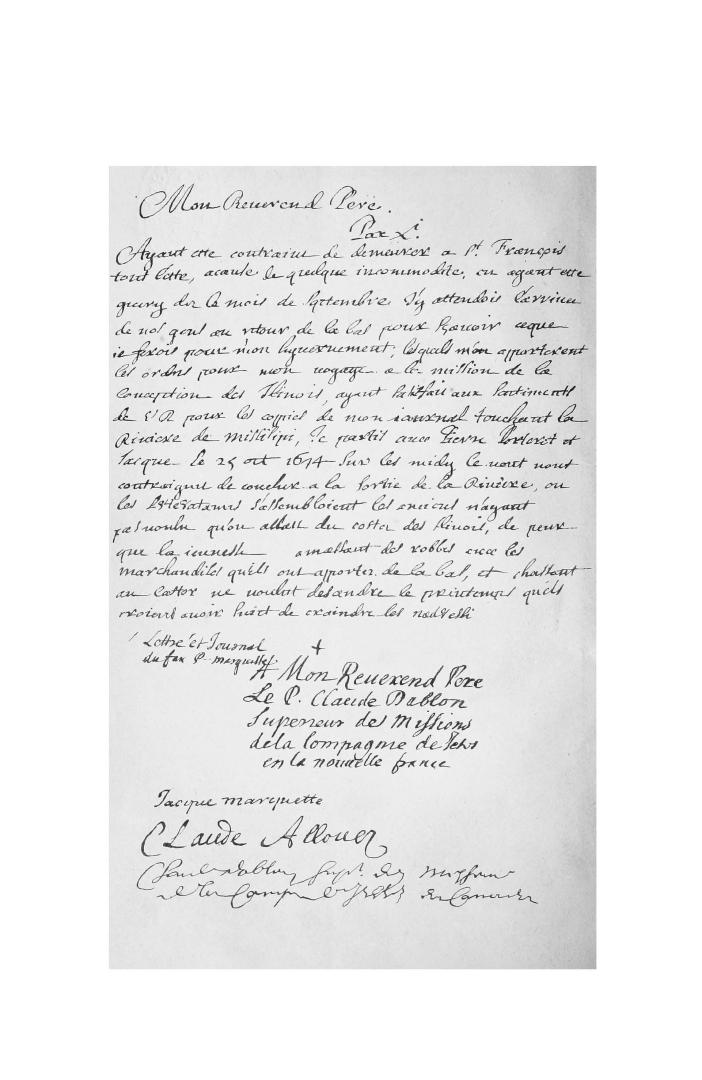 Mon Reuerend Pere.
Pax Xi.
Ayant este contraint de demeurer a St. François
tout l'este, acause de quelque incommodite, en ayant este
guery dez le mois de septembre J'y attendois l'arriuee
de nos gens au retour de la bas pour scauoir ceque
ie ferois pour mon hyuernement; lesquels m'en apporterent
les ordres pour mon uoyage a la mission de la
Conception des Ilinois, ayant satisfait aux sentiments
de V R pour les copies de mon iournal touchant la
Riuiere de missisipi, Je partis auec Pierre Porteret et
Jacque Le 25 oct 1674 Sur les midy le uent nous
contraignit de coucher a la sortie de la Riuiere, ou
les s'assembloient les anciens n'ayant
pas uoulu qu'on allast du costez des Ilinois, de peur
que la ieunesse amassant des robbes auec les
marchandises quils ont apportez de la bas, et chassant
au Castor ne uoulut desandre le printemps quils
croient auoir suiect de craindre les nadoessi
Lettre et Journal
du feu P. marquette
Mon Reuerend Pere
Le P. Claude Dablon
Superieur des Missions
dela Compagnie de Jesus
en la nouuelle france
Jacque marquette
CLaude ALLouez
Claude Dablon Supr. des missions
de la Compe de Jesus en Canada